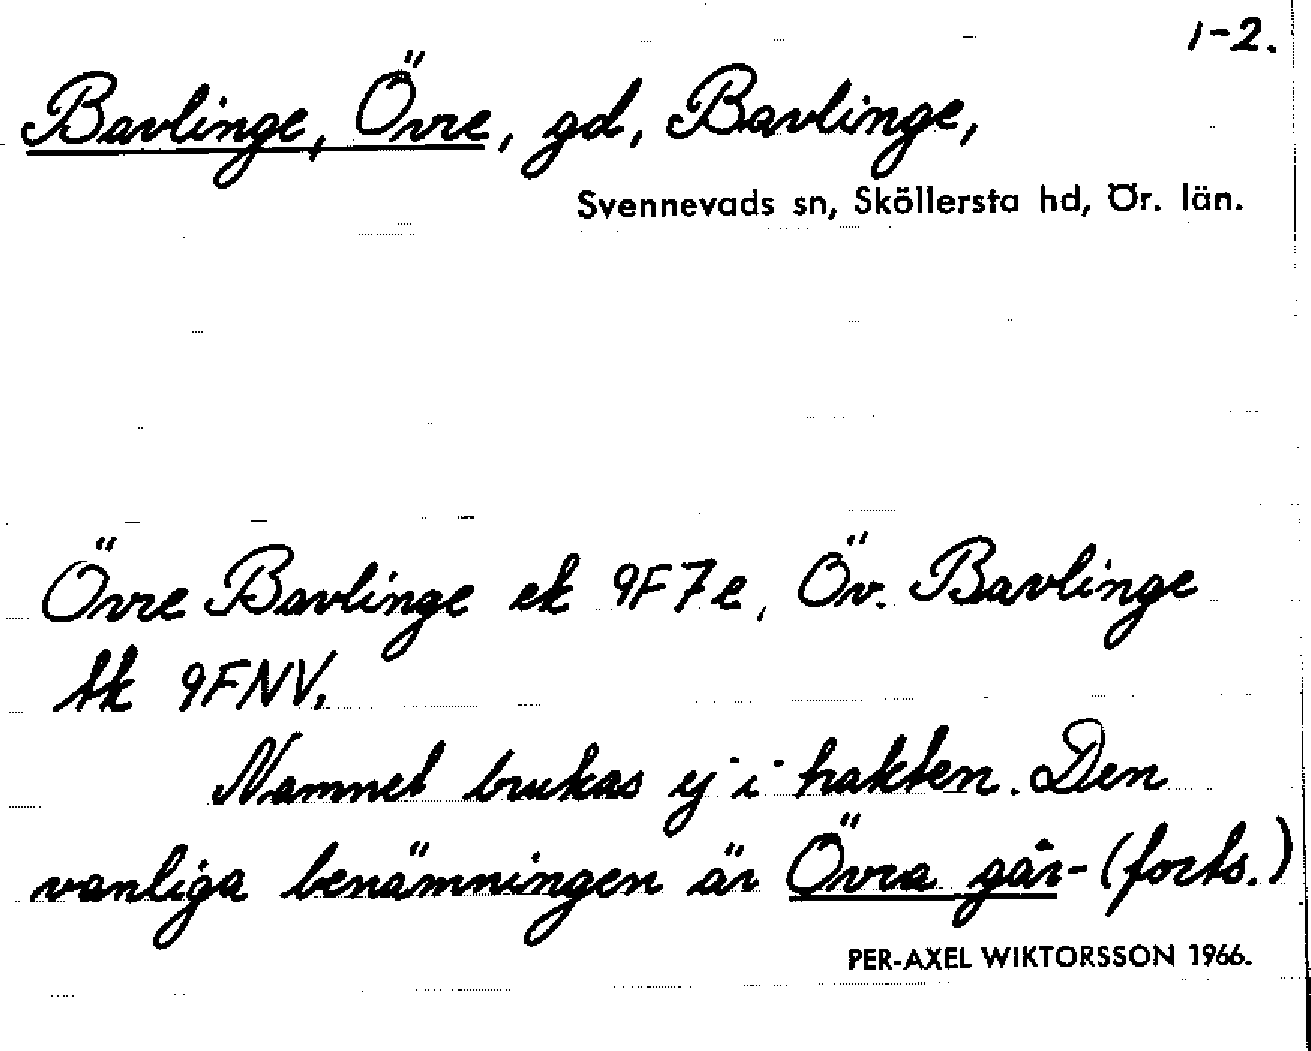 1-2.
Bavlinge, Övre, gd, Bavlinge,
Svennevads sn, Sköllersta hd, Ör. län.
Övre Bavlinge ek 9F7e, Öv. Bavlinge
tk 9FNV.
Namnet brukas ej i trakten. Den
vanliga benämningen är Övra går- (forts.)
PER-AXEL WIKTORSSON 1966.